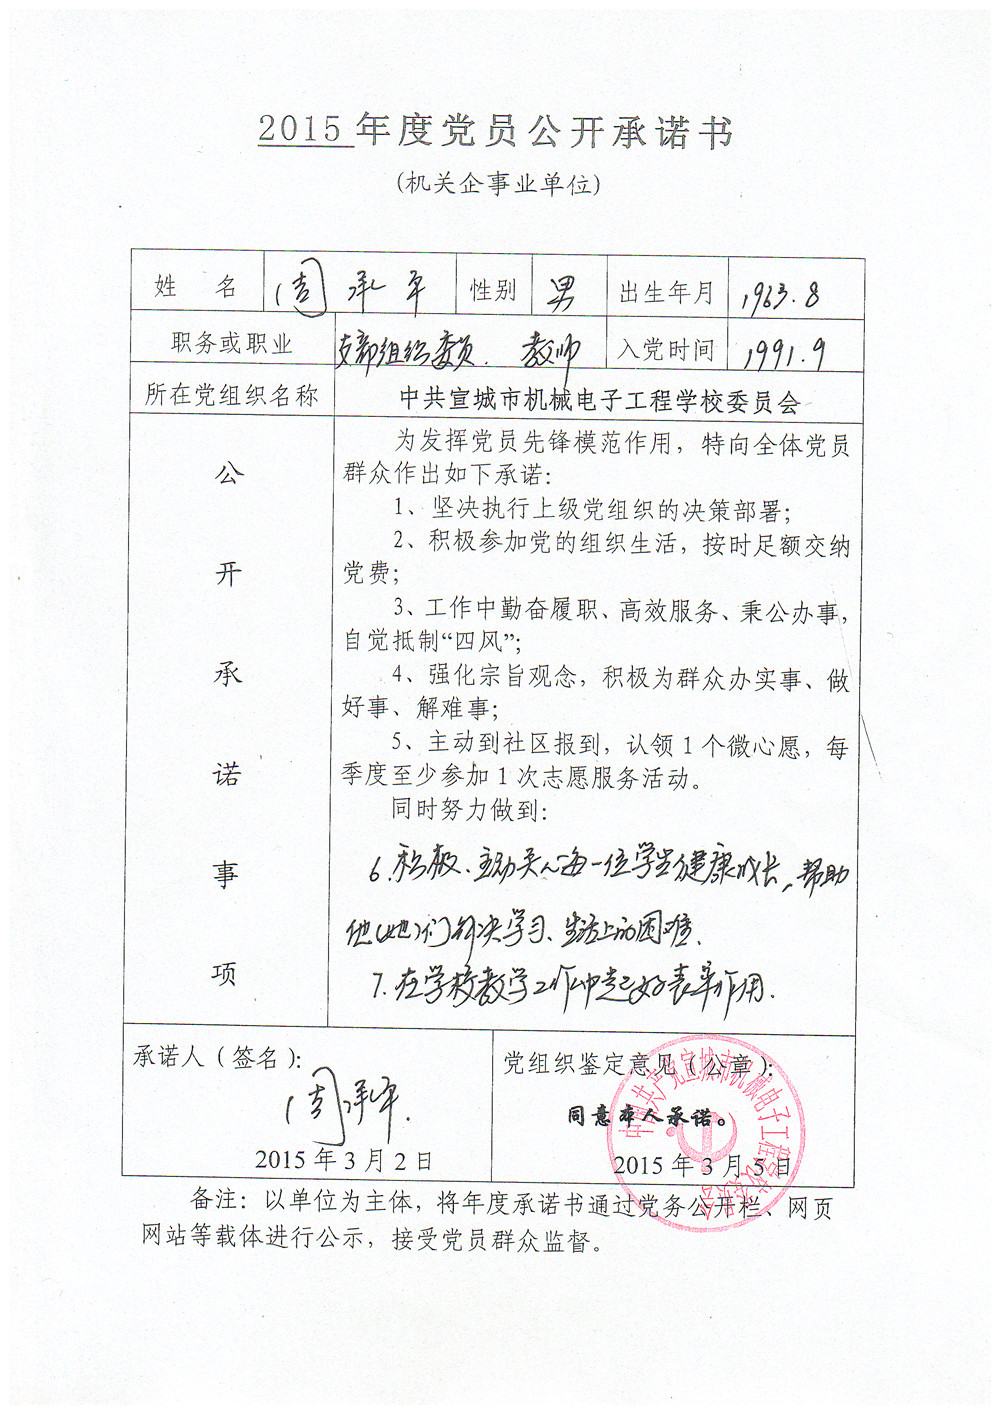 2015 年度党员公开承诺书
(机关企事业单位)
姓 名 周承平 性别 男 出生年月 1963.8
职务或职业 支部组织委员. 教师 入党时间 1991.9
所在党组织名称 中共宣城市机械电子工程学校委员会
公开承诺事项
为发挥党员先锋模范作用，特向全体党员
群众作出如下承诺：
1、坚决执行上级党组织的决策部署；
2、积极参加党的组织生活，按时足额交纳
党费；
3、工作中勤奋履职、高效服务、秉公办事，
自觉抵制“四风”；
4、强化宗旨观念，积极为群众办实事、做
好事、解难事；
5、主动到社区报到，认领 1 个微心愿，每
季度至少参加 1 次志愿服务活动。
同时努力做到：
6.积极、主动关心每一位学生健康成长，帮助
他(她)们解决学习、生活上的困难.
7.在学校教学工作中起好表率作用.
承诺人（签名）：
周承平.
2015 年 3 月 2 日
党组织鉴定意见（公章）：
同意本人承诺。
2015 年 3 月 5 日
中国共产党宣城市机械电子工程学校委员会
备注：以单位为主体，将年度承诺书通过党务公开栏、网页
网站等载体进行公示，接受党员群众监督。